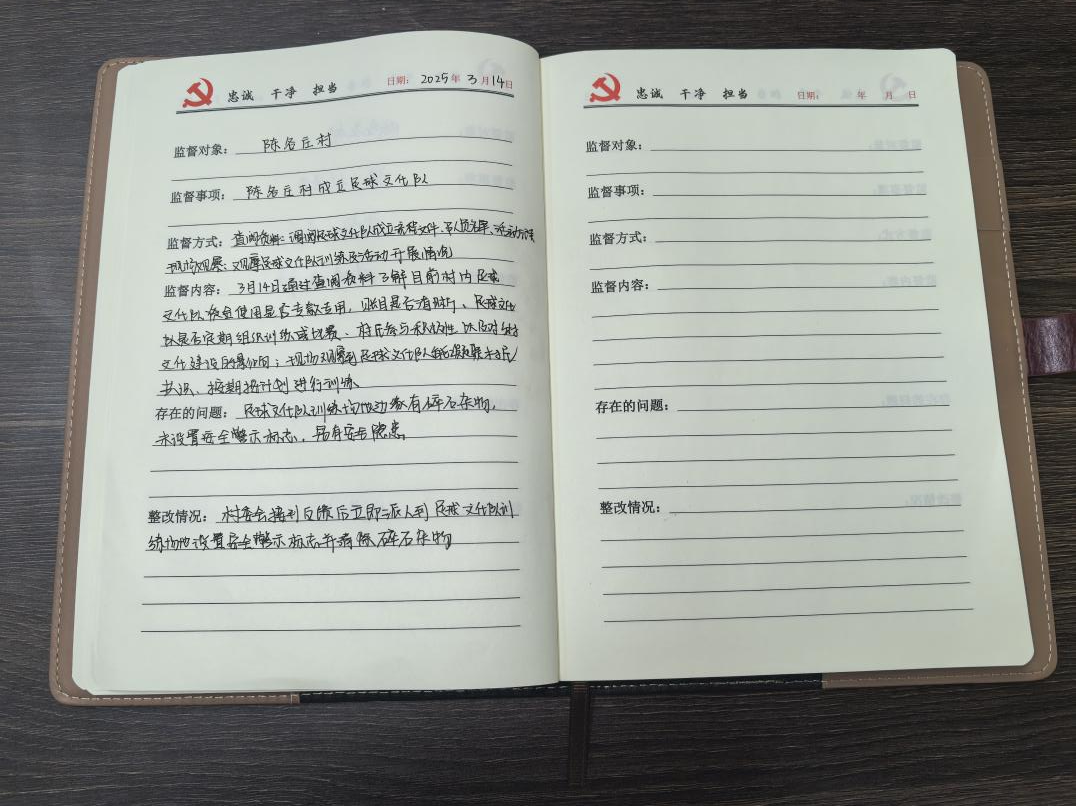 忠诚 干净 担当 日期: 2025年3月14日
监督对象: 陈名庄村
监督事项: 陈名庄村成立足球文化队
监督方式: 查阅资料:调阅足球文化队成立流程文件、名单、活动
现场观察:观摩足球文化队训练及活动开展情况
监督内容: 3月14日通过查阅资料了解目前村内足球
文化队资金使用是否专款专用,账目是否清晰、足球文化
队是否定期组织训练或比赛、村民参与积极性以及对乡村
文化建设的影响;现场观察到足球文化队能凝聚村民
共识、按期按计划进行训练。
存在的问题: 足球文化队训练场地边缘有碎石杂物,
未设置安全警示标志,易存安全隐患。
整改情况: 村委会接到反馈后立即派人到足球文化队训
练场地设置安全警示标志并清除碎石杂物
忠诚 干净 担当 日期: 年 月 日
监督对象:
监督事项:
监督方式:
监督内容:
存在的问题:
整改情况: